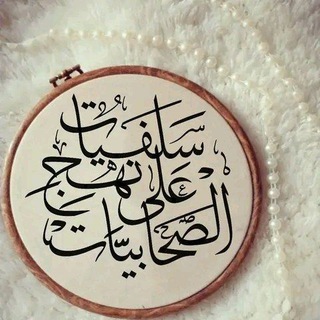 سَلَفيات
عَلى نهج
الصَّحابيّات